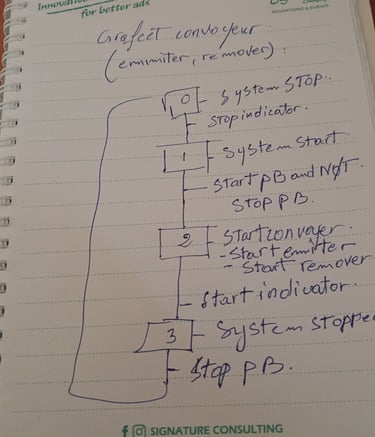 Innovative
for better ads
ADVERTISING & EVENTS
Grafcet convoyeur
(emmiter, remover):
0 System STOP.
STOP indicator.
1 System Start
Start PB and NOT
STOP PB.
2 Start convoyer.
- Start emitter
- Start remover
Start indicator.
3 System stopper
Stop PB.
f SIGNATURE CONSULTING